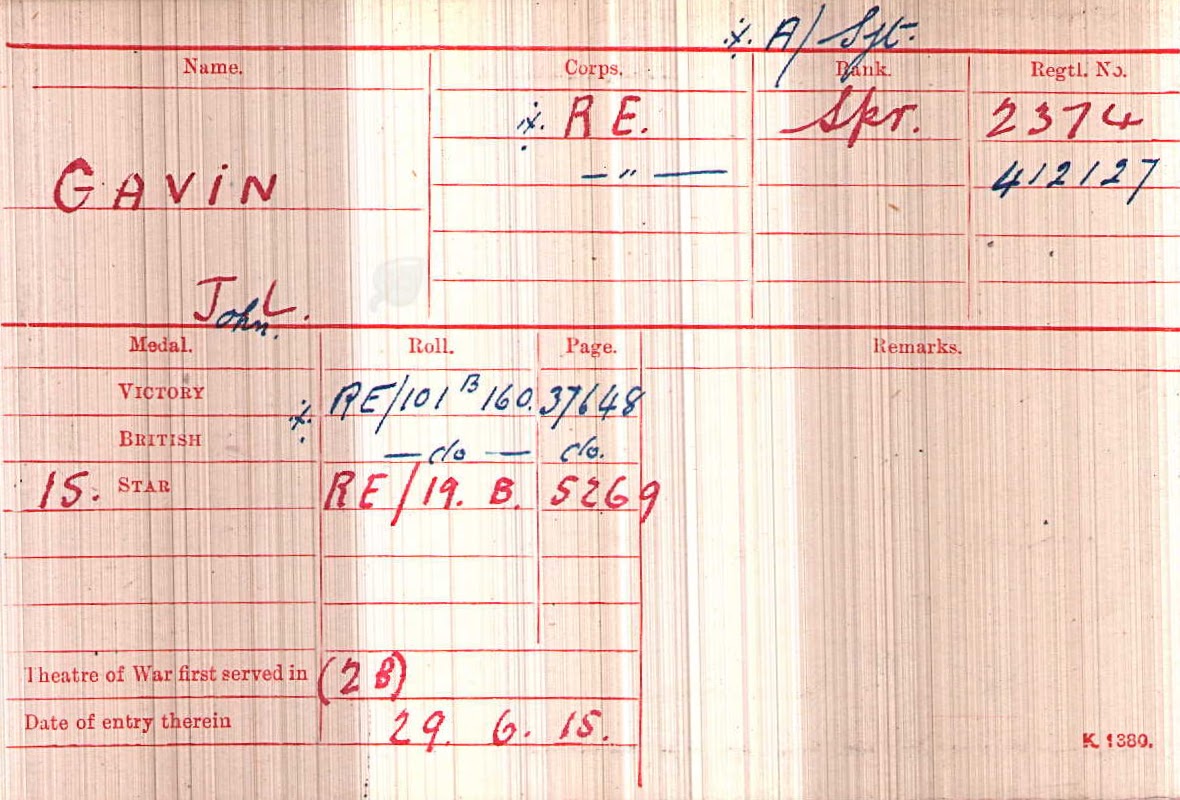 ·/· A/Sjt.
Name. Corps. Rank. Regtl. No.
·/· R E. Spr. 2374
GAVIN — " — 412127
John L.
Medal. Roll. Page. Remarks.
VICTORY ·/· RE/101 B 160. 37648
BRITISH — do — do.
15. STAR RE/19. B. 5269
Theatre of War first served in (2 B)
Date of entry therein 29. 6. 15.
K 1380.